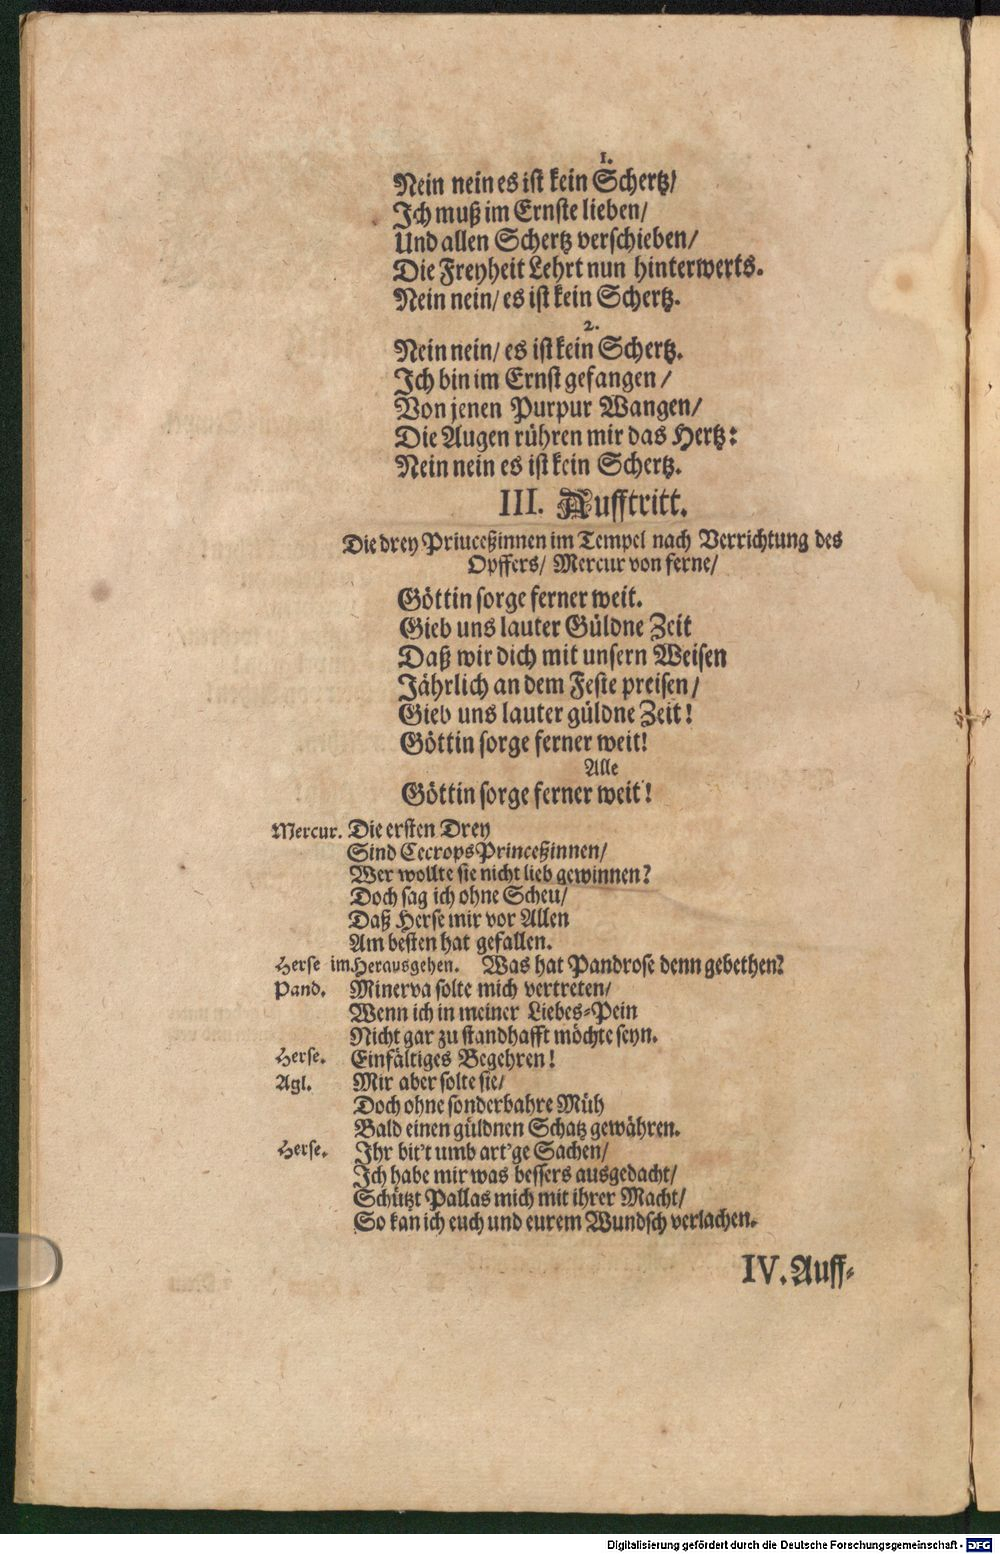 1.
Nein nein es ist kein Schertz/
Ich muß im Ernste lieben/
Und allen Schertz verschieben/
Die Freyheit Lehrt nun hinterwerts.
Nein nein/ es ist kein Schertz.
2.
Nein nein/ es ist kein Schertz.
Ich bin im Ernst gefangen/
Von jenen Purpur Wangen/
Die Augen rühren mir das Hertz:
Nein nein es ist kein Schertz.
III. Aufftritt.
Die drey Priuceßinnen im Tempel nach Verrichtung des
Opffers/ Mercur von ferne/
Göttin sorge ferner weit.
Gieb uns lauter Güldne Zeit
Daß wir dich mit unsern Weisen
Jährlich an dem Feste preisen/
Gieb uns lauter güldne Zeit!
Göttin sorge ferner weit!
Alle
Göttin sorge ferner weit!
Mercur. Die ersten Drey
Sind Cecrops Princeßinnen/
Wer wollte sie nicht lieb gewinnen?
Doch sag ich ohne Scheu/
Daß Herse mir vor Allen
Am besten hat gefallen.
Herse im Herausgehen. Was hat Pandrose denn gebethen?
Pand. Minerva solte mich vertreten/
Wenn ich in meiner Liebes-Pein
Nicht gar zu standhafft möchte seyn.
Herse. Einfältiges Begehren!
Agl. Mir aber solte sie/
Doch ohne sonderbahre Müh
Bald einen güldnen Schatz gewähren.
Herse. Ihr bit't umb art'ge Sachen/
Ich habe mir was bessers ausgedacht/
Schützt Pallas mich mit ihrer Macht/
So kan ich euch und eurem Wundsch verlachen.
IV. Auff-
Digitalisierung gefördert durch die Deutsche Forschungsgemeinschaft - DFG